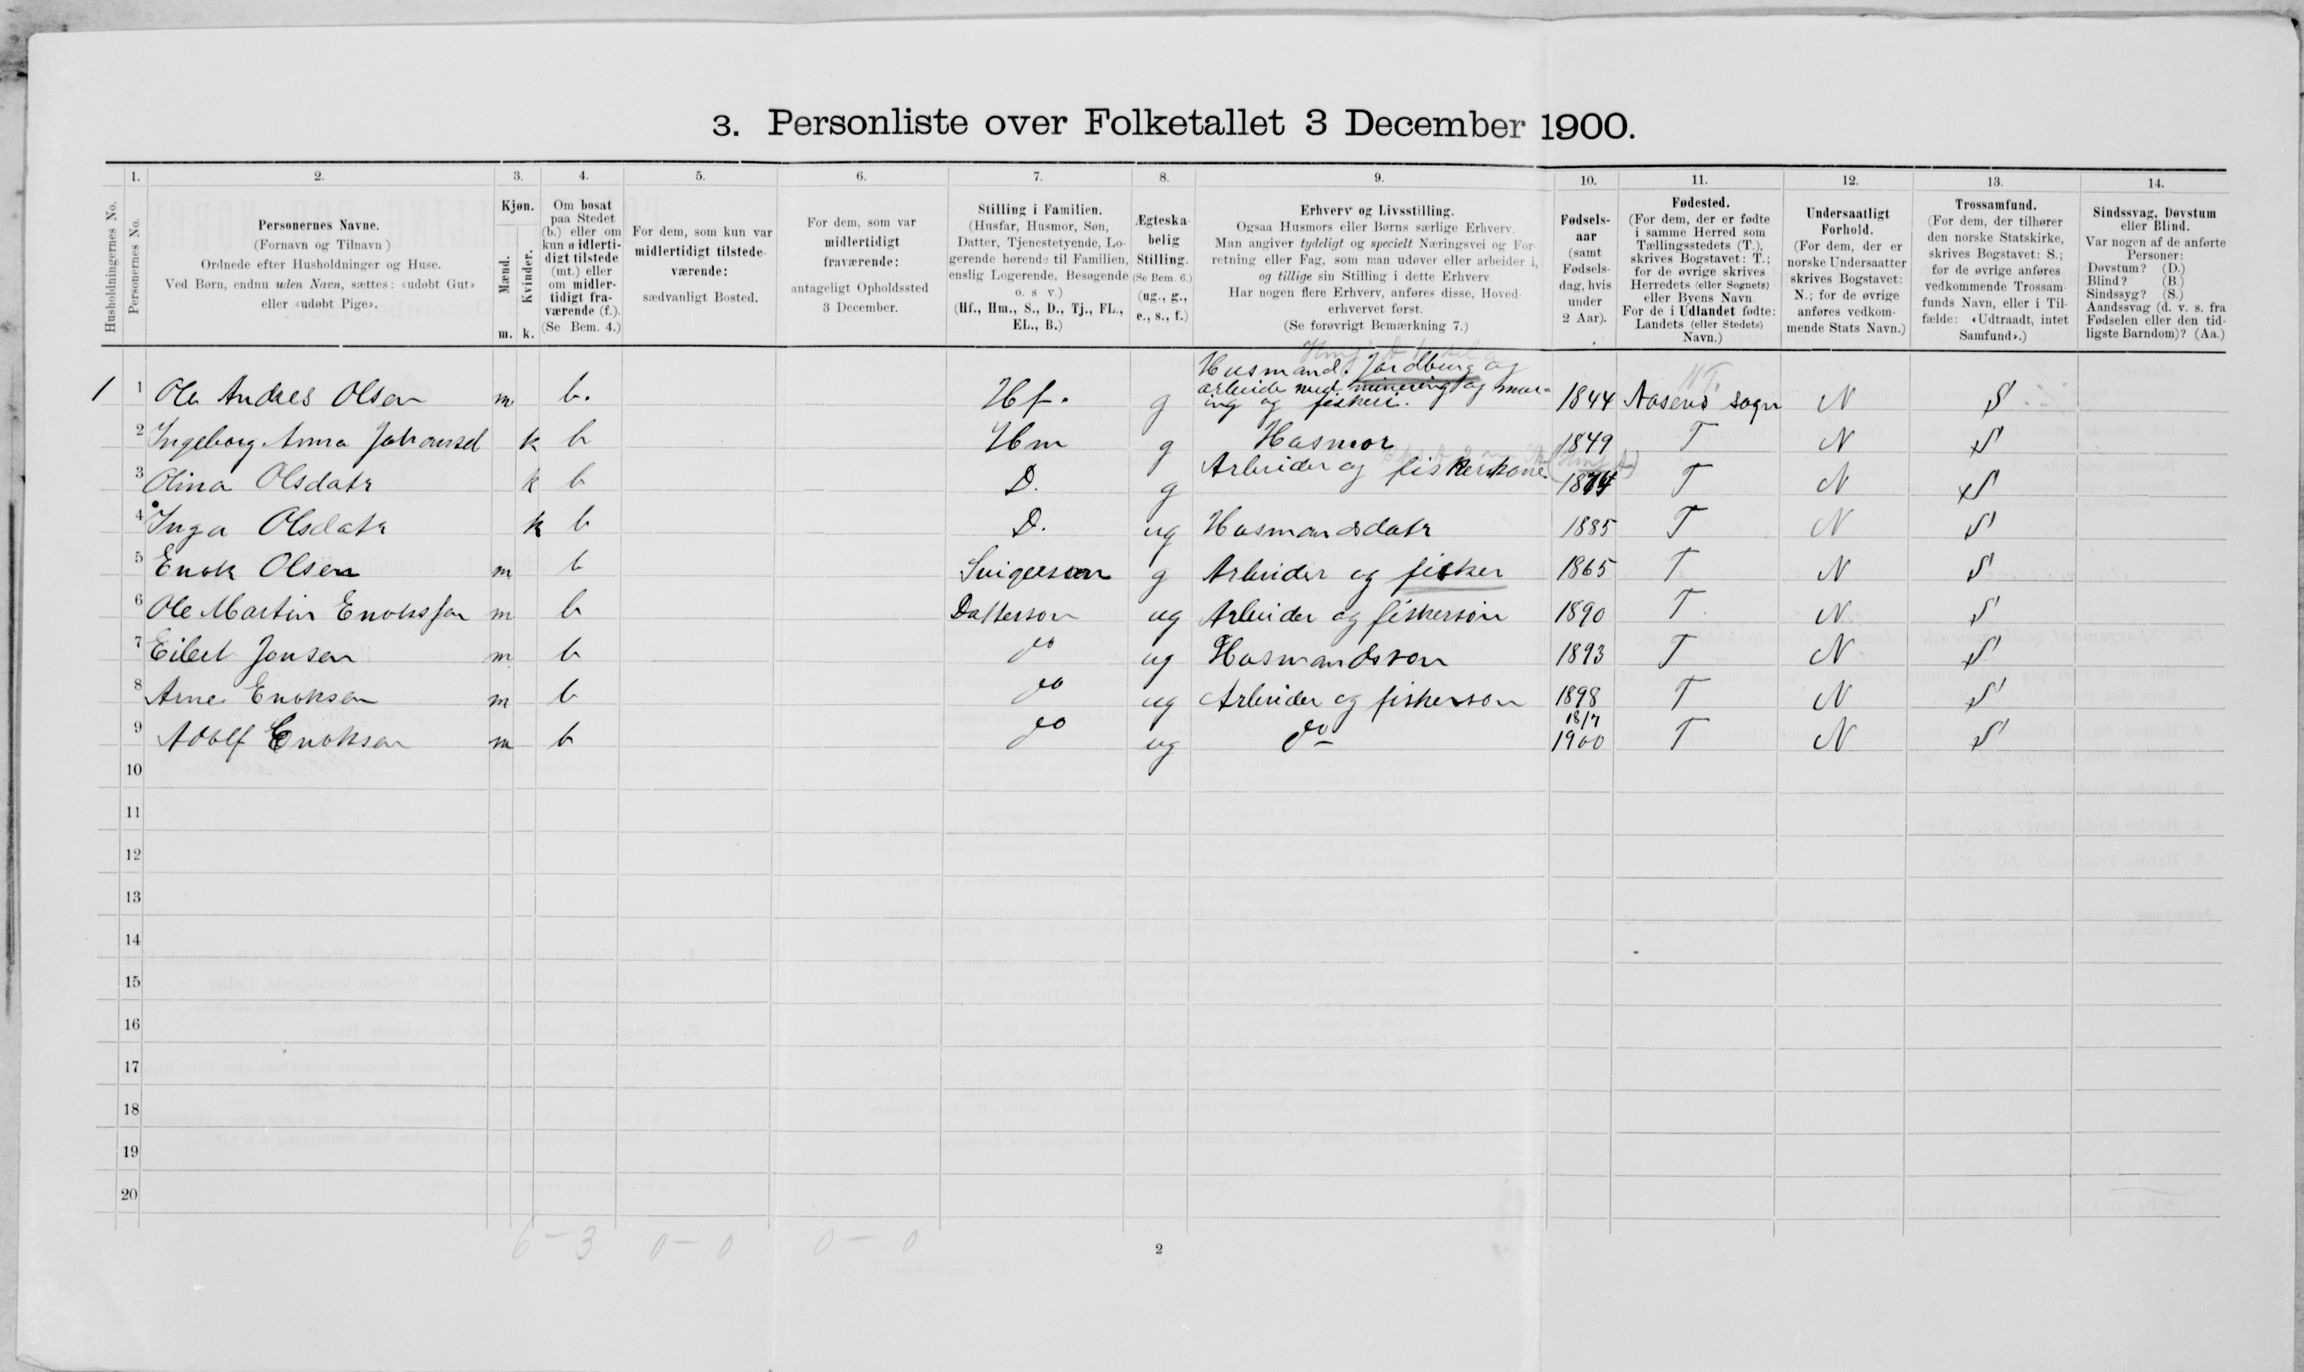 3. Personliste over Folketallet 3 December 1900.
1. 2. 3. 4. 5. 6. 7. 8. 9. 10. 11. 12. 13. 14.
Husholdningernes No.
Personernes No.
Personernes Navne.
(Fornavn og Tilnavn)
Ordnede efter Husholdninger og Huse.
Ved Børn, endnu uden Navn, sættes: «udøbt Gut»
eller «udøbt Pige».
Kjøn.
Mænd.
Kvinder.
m. k.
Om bosat
paa Stedet
(b.) eller om
kun midlerti-
digt tilstede
(mt.) eller
om midler-
tidigt fra-
værende (f.).
(Se Bem. 4.)
For dem, som kun var
midlertidigt tilstede-
værende:
sædvanligt Bosted.
For dem, som var
midlertidigt
fraværende:
antageligt Opholdssted
3 December.
Stilling i Familien.
(Husfar, Husmor, Søn,
Datter, Tjenestetyende, Lo-
gerende hørende til Familien,
enslig Logerende, Besøgende
o. s v.)
(Hf., Hm., S., D., Tj., FL.,
EL., B.)
Ægteska-
belig
Stilling.
(Se Bem. 6.)
(ug., g.,
e., s., f.)
Erhverv og Livsstilling.
Ogsaa Husmors eller Børns særlige Erhverv.
Man angiver tydeligt og specielt Næringsvei og For-
retning eller Fag, som man udøver eller arbeider i,
og tillige sin Stilling i dette Erhverv.
Har nogen flere Erhverv, anføres disse, Hoved-
erhvervet først.
(Se forøvrigt Bemærkning 7.)
Fødsels-
aar
(samt
Fødsels-
dag, hvis
under
2 Aar).
Fødested.
(For dem, der er fødte
i samme Herred som
Tællingsstedets (T.),
skrives Bogstavet: T.;
for de øvrige skrives
Herredets (eller Sognets)
eller Byens Navn.
For de i Udlandet fødte:
Landets (eller Stedets)
Navn.)
Undersaatligt
Forhold.
(For dem, der er
norske Undersaatter
skrives Bogstavet:
N.; for de øvrige
anføres vedkom-
mende Stats Navn.)
Trossamfund.
(For dem, der tilhører
den norske Statskirke,
skrives Bogstavet: S.;
for de øvrige anføres
vedkommende Trossam-
funds Navn, eller i Til-
fælde: «Udtraadt, intet
Samfund».)
Sindssvag, Døvstum
eller Blind.
Var nogen af de anførte
Personer:
Døvstum? (D.)
Blind? (B.)
Sindssyg? (S.)
Aandssvag (d. v. s. fra
Fødselen eller den tid-
ligste Barndom)? (Aa.)
Husmand. Jordbrug og
arbeide med minering og mur-
1 1 Ole Andres Olsen m b. Hf. g ing og fiskeri. 1844 Aasenø sogn N S
2 Ingeborg Anna Johansd k b Hm g Husmor 1849 T N S
3 Olina Olsdatr k b D. g Arbeider og fiskerkone 1874 T N S
4 Inga Olsdatr k b D. ug Husmandsdatr 1885 T N S
5 Enok Olsen m b Svigerson g Arbeider og fisker 1865 T N S
6 Ole Martin Enoksson m b Datterson ug Arbeider og fiskersøn 1890 T N S
7 Eilert Jonsen m b do ug Husmandsson 1893 T N S
8 Arne Enoksen m b do ug Arbeider og fiskerson 1898 T N S
18/7
9 Adolf Enoksen m b do ug do 1900 T N S
10
11
12
13
14
15
16
17
18
19
20
6 - 3 0 - 0 0 - 0
2